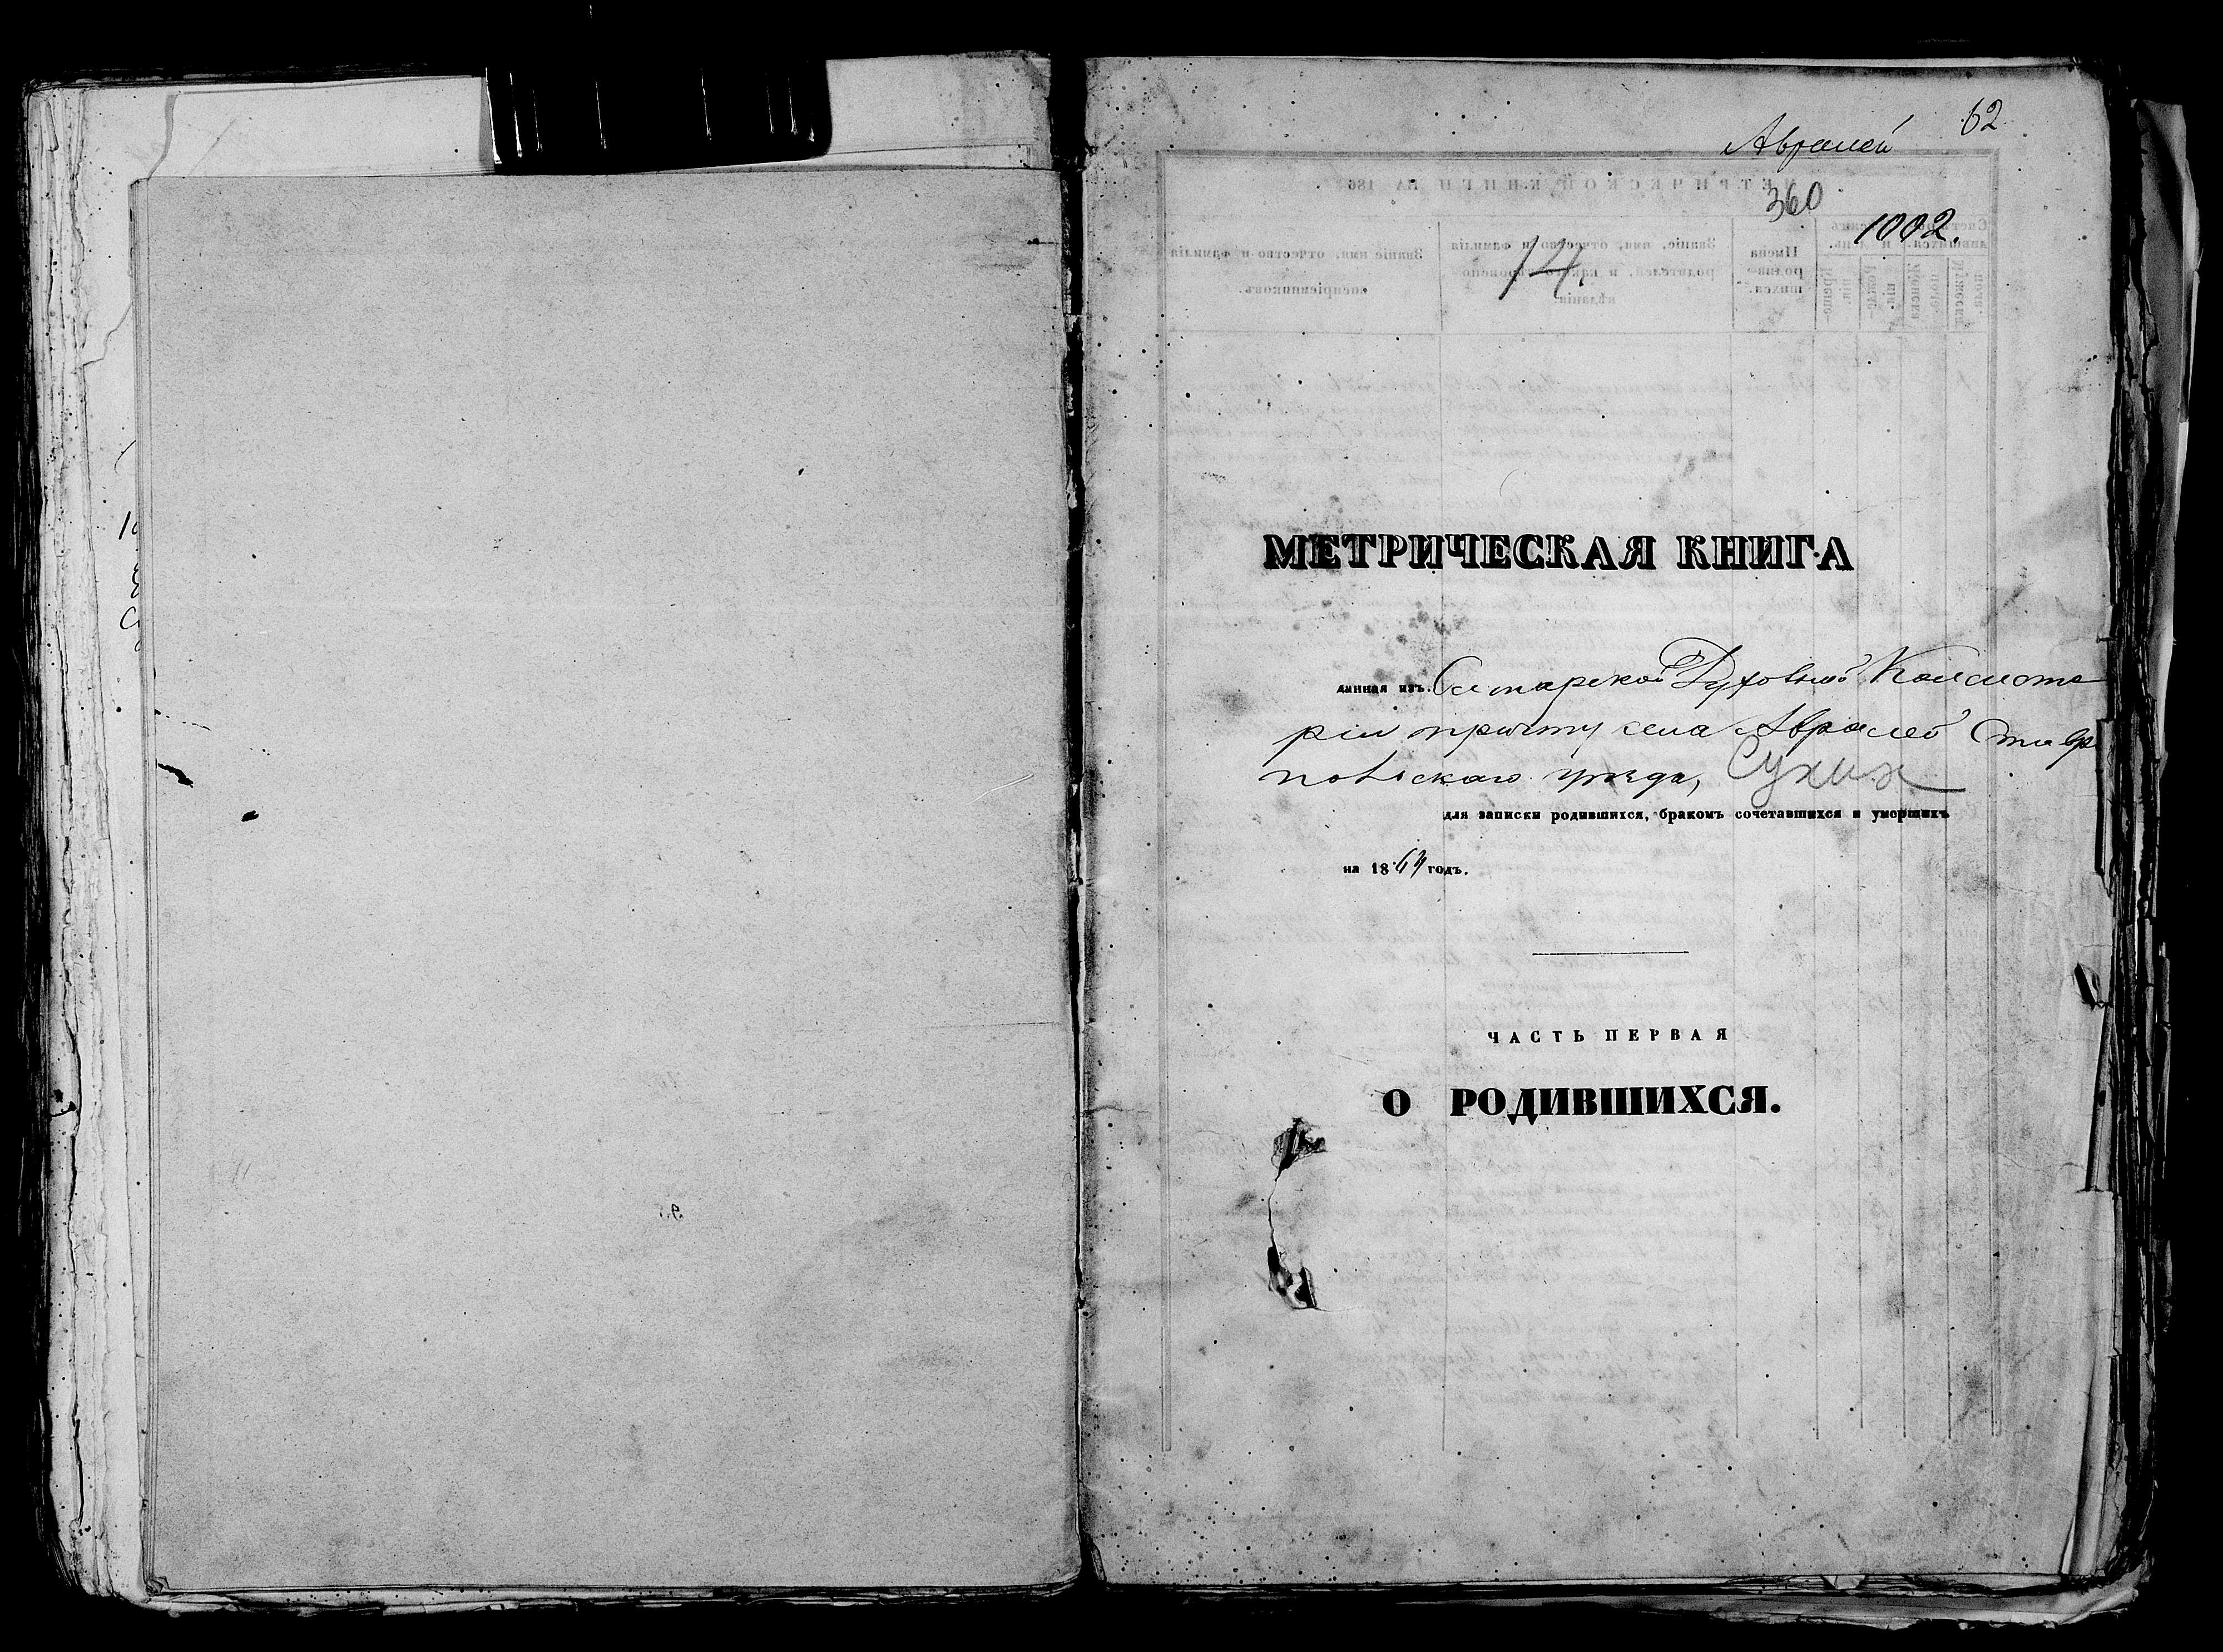 62
Авралей
360
1002.
14.
МЕТРИЧЕСКАЯ КНИГА
данная изъ Самарской Духовной Консисто
ріи причту села Авралей Ставро
польскаго уѣзда, Сухих
для записки родившихся, бракомъ сочетавшихся и умершихъ
на 1864 годъ.
ЧАСТЬ ПЕРВАЯ
О РОДИВШИХСЯ.